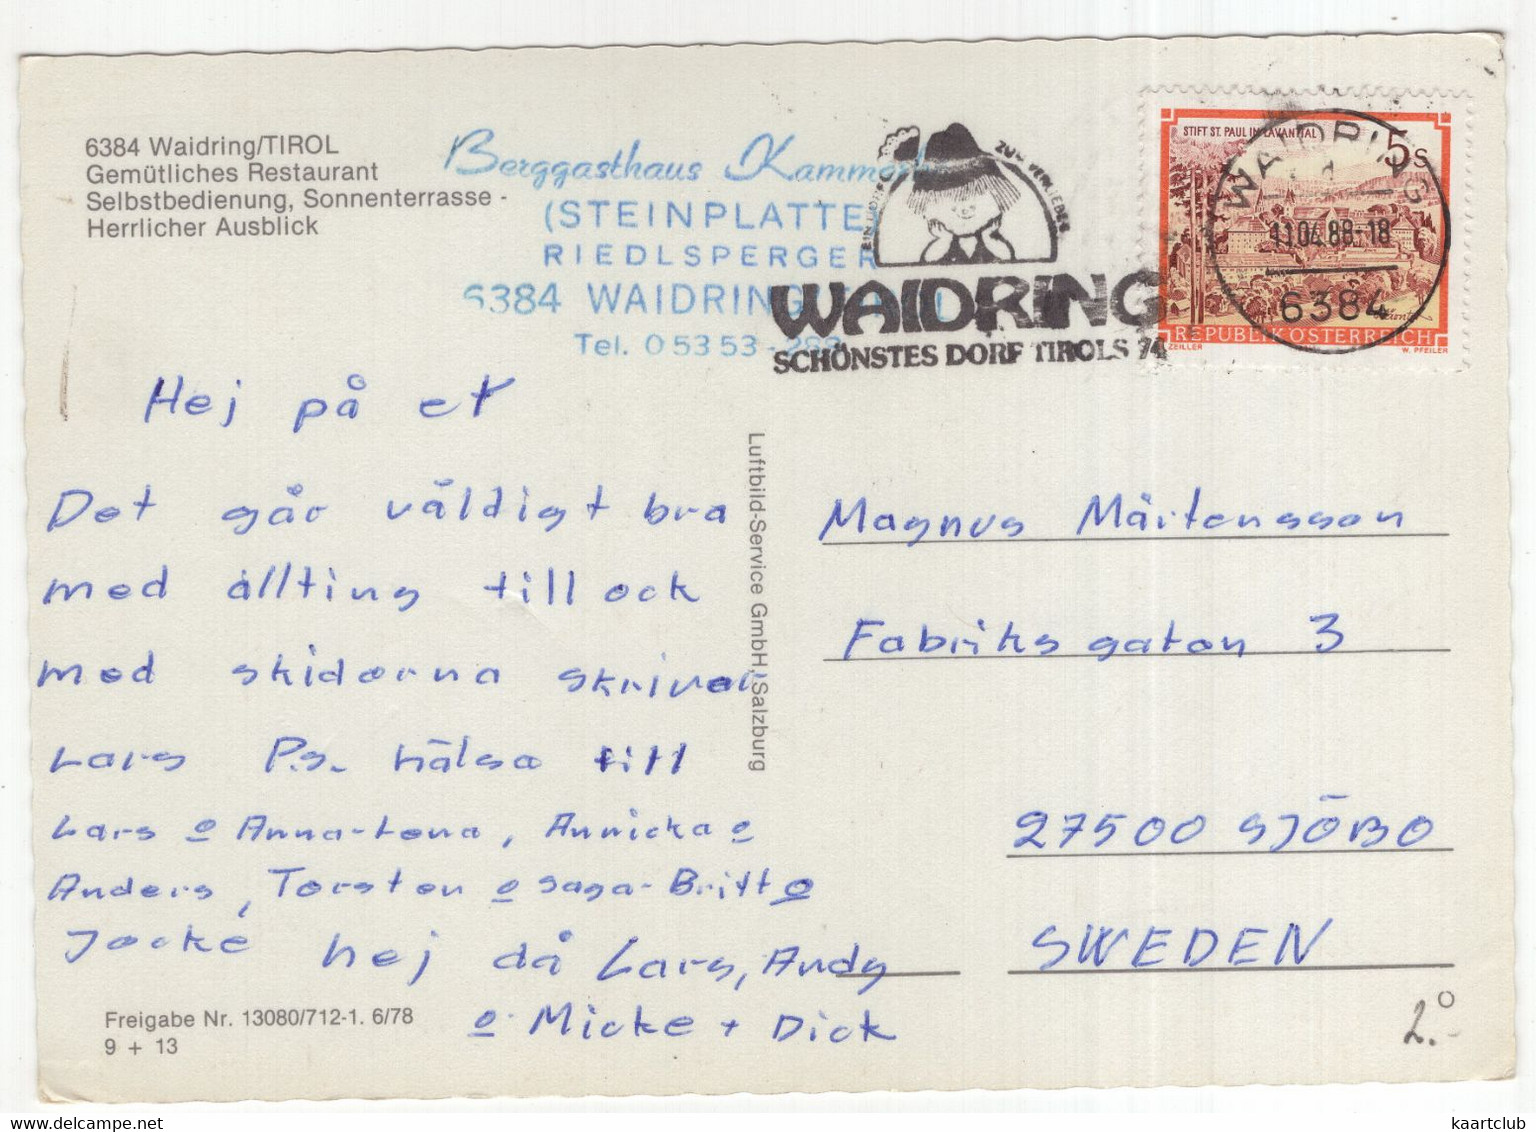 6384 Waidring/TIROL
Gemütliches Restaurant
Selbstbedienung, Sonnenterrasse -
Herrlicher Ausblick
Berggasthaus
(STEINPLATTE)
RIEDLSPERGER
6384 WAIDRING
Tel. 0 53 53 - 283
ZUM VERLIEBEN
WAIDRING
SCHÖNSTES DORF TIROLS 74
STIFT ST. PAUL IM LAVANTTAL
5 S
REPUBLIK ÖSTERREICH
ZEILLER
W. PFEILER
WAIDRING
11.04.88-18
6384
Hej på er
Det går väldigt bra
med allting till ock
med skidorna skriver
Lars P.s. hälsa till
Lars o Anna-Lena, Annicka o
Anders, Torsten o Saga-Britt o
Jocke hej då Lars, Andy
o Micke + Dick
Luftbild-Service GmbH, Salzburg
Magnus Mårtensson
Fabriksgatan 3
27500 SJÖBO
SWEDEN
Freigabe Nr. 13080/712-1. 6/78
9 + 13
www.delcampe.net
kaartclub